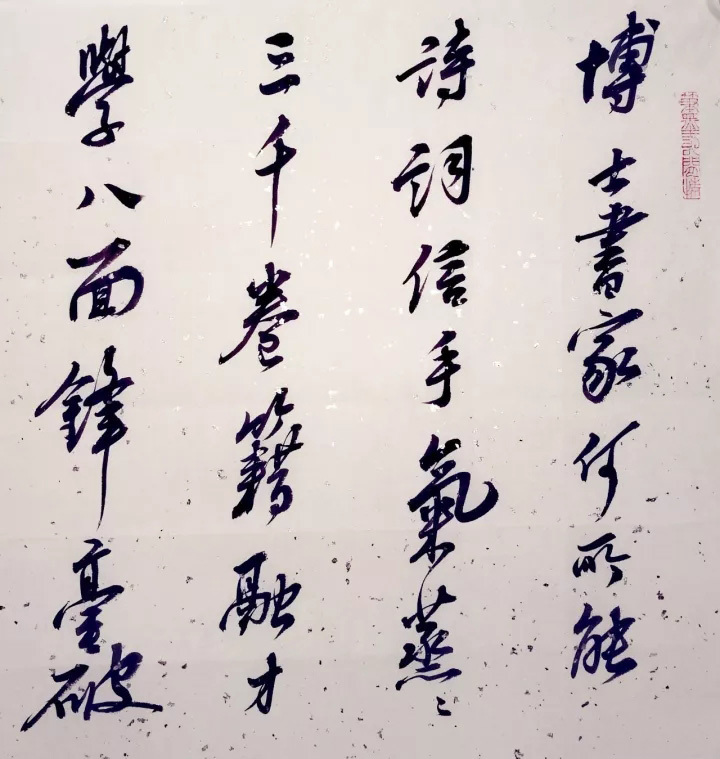 博士書家何所能
詩詞信手氣蒸〻
三千卷籍融才
學八面鋒毫破